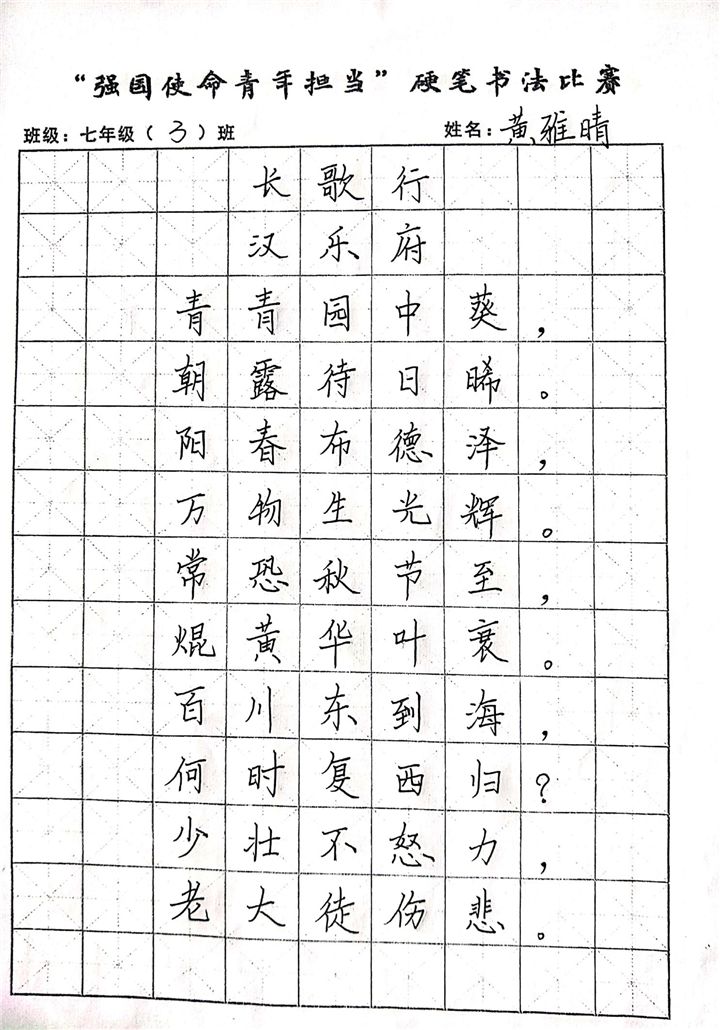 “强国使命青年担当”硬笔书法比赛
班级：七年级（3）班 姓名：黄雅晴
长歌行
汉乐府
青青园中葵，
朝露待日晞。
阳春布德泽，
万物生光辉。
常恐秋节至，
焜黄华叶衰。
百川东到海，
何时复西归？
少壮不怒力，
老大徒伤悲。